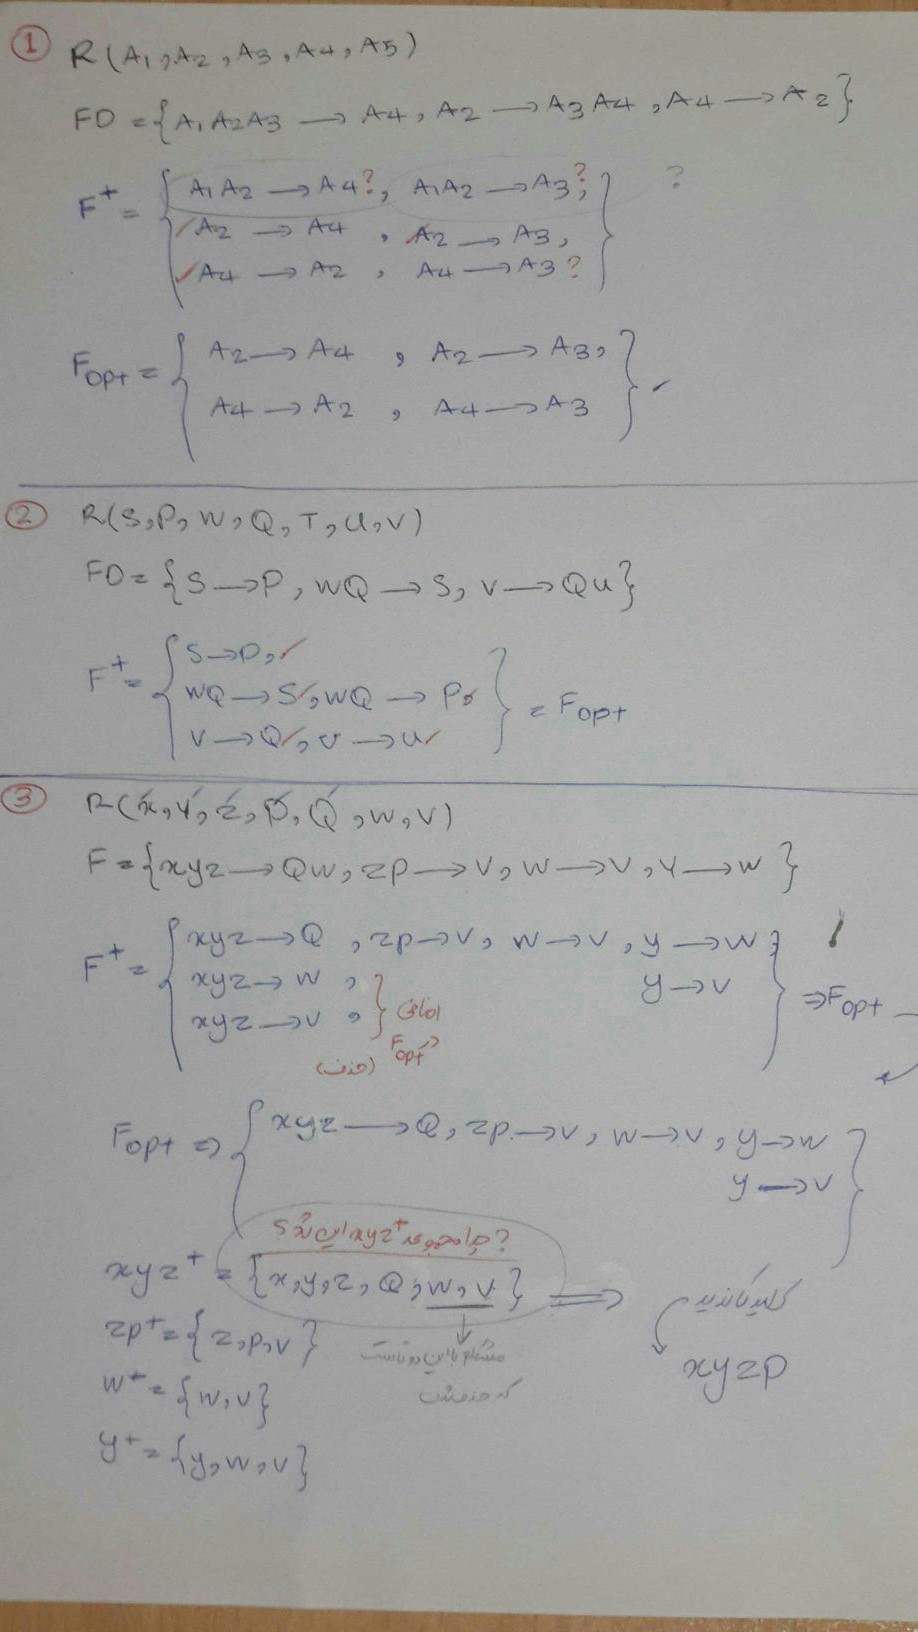 1 R(A1, A2, A3, A4, A5)
FD = {A1A2A3 → A4, A2 → A3A4, A4 → A2}
F+ = { A1A2 → A4?, A1A2 → A3?, } ?
A2 → A4, A2 → A3,
A4 → A2, A4 → A3?
Fopt = { A2 → A4, A2 → A3,
A4 → A2, A4 → A3 }
2 R(S, P, W, Q, T, U, V)
FD = {S → P, WQ → S, V → QU}
F+ = { S → P,
WQ → S, WQ → P, } = Fopt
V → Q, V → U
3 R(x, y, z, p, Q, w, v)
F = {xyz → Qw, zp → v, w → v, y → w}
F+ = { xyz → Q, zp → v, w → v, y → w,
xyz → w, } y → v } ⇒ Fopt
xyz → v, } اضافی
در Fopt
(حذف)
Fopt ⇒ { xyz → Q, zp → v, w → v, y → w
y → v }
چرا مجموعه xyz+ این شد؟
xyz+ = {x, y, z, Q, w, v} ⇒ کلید کاندید
zp+ = {z, p, v}
مشکلم با این دو تاست
xyzp
w+ = {w, v}
که
y+ = {y, w, v}